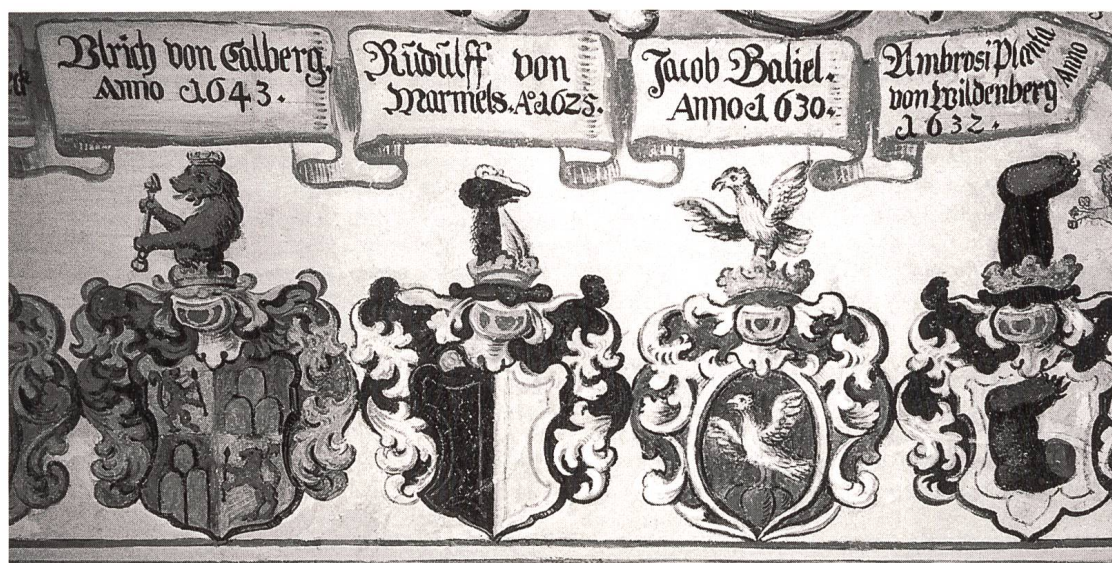 Ulrich von Calberg.
Anno 1643.
Rudulff von
Marmels. Aº 1625.
Jacob Baliel.
Anno 1630.
Ambrosi Planta Anno
von Wildenberg
1632.